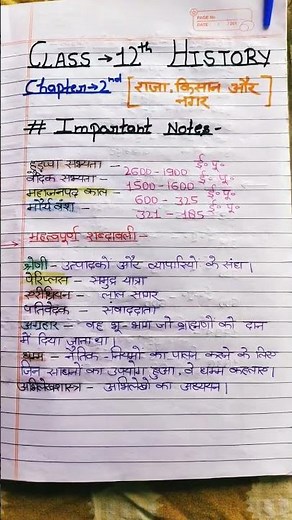 CLASS → 12th HISTORY
Chapter → 2nd [राजा, किसान और नगर]
# Important Notes -
हड़प्पा सभ्यता - 2600-1900 ई० पू०
वैदिक सभ्यता - 1500-1600 ई० पू०
महाजनपद काल - 600 - 325 ई० पू०
मौर्य वंश - 321 - 185 ई० पू०
→ महत्वपूर्ण शब्दावली -
श्रेणी - उत्पादकों और व्यापारियों के संघ।
पेरिप्लस - समुद्र यात्रा
- लाल सागर
पतिवेदक - संवाददाता
अग्रहार - वह भू-भाग जो ब्राह्मणों को दान
में दिया जाता था।
धम्म - नैतिक-नियमों का पालन करने के लिए
जिन साधनों का उपयोग हुआ, वे धम्म कहलाए।
अभिलेखशास्त्र - अभिलेखों का अध्ययन।